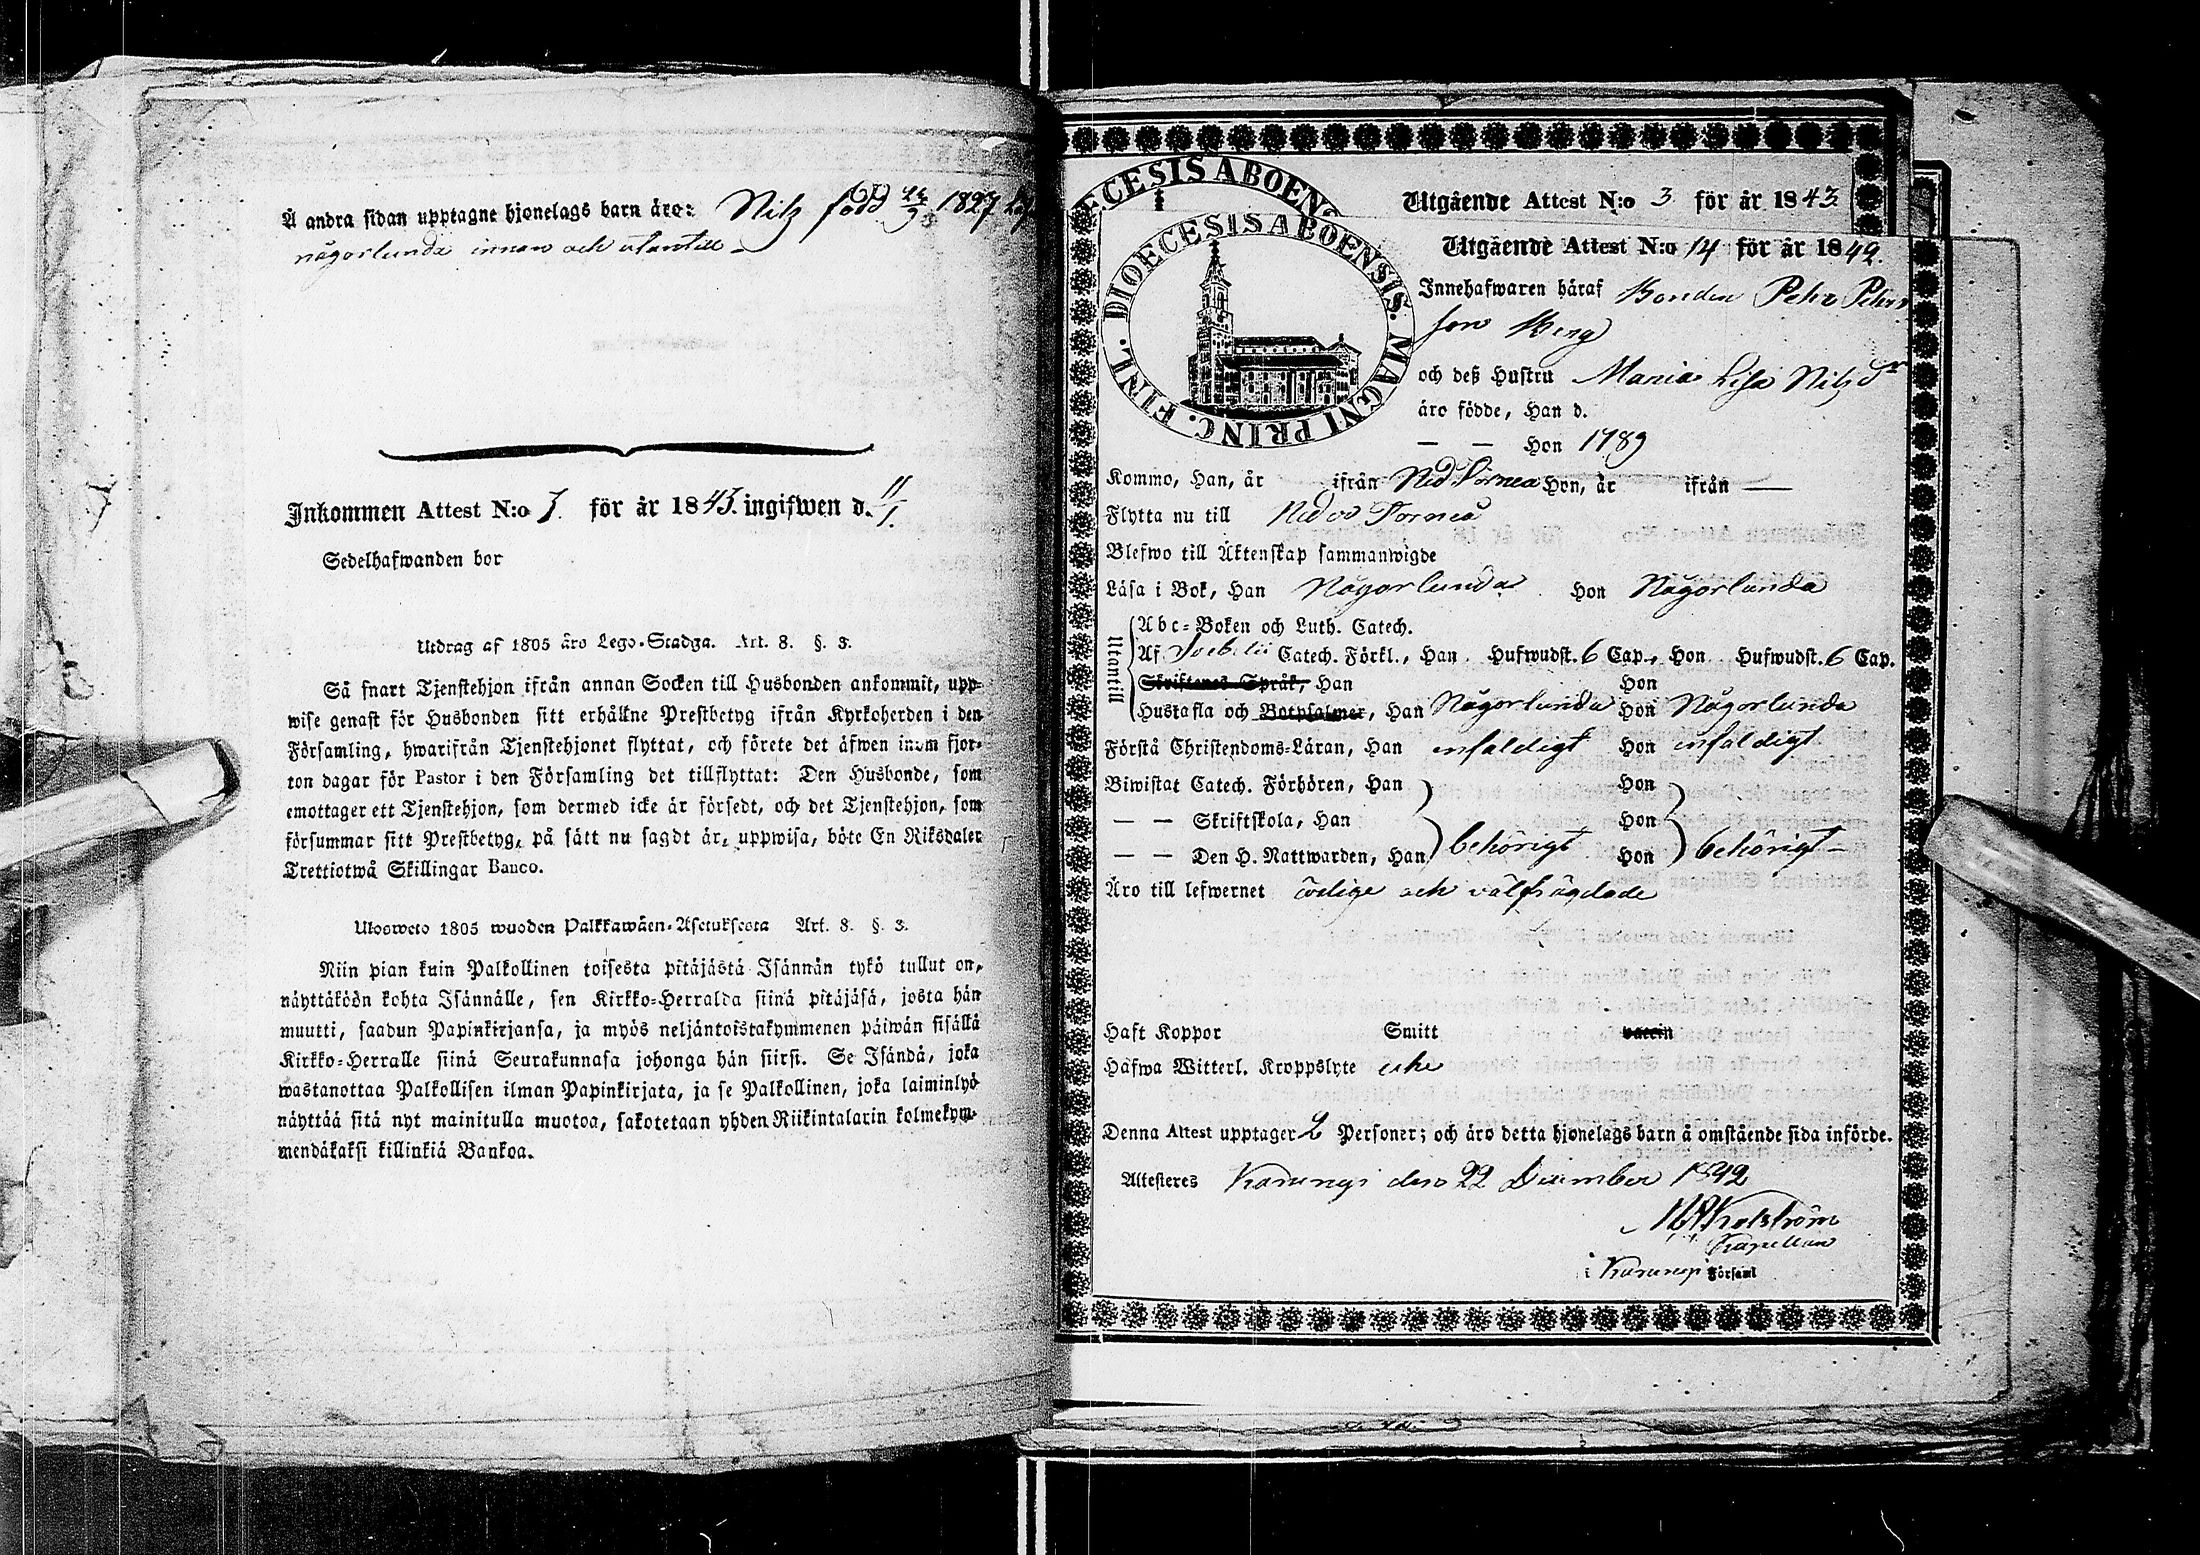 Å andra sidan upptagne hjonelags barn äro: Nils född 24/9 1827
någorlunda innan och utantill
Inkommen Attest N:o 3. för år 1843. ingifwen d. 11/1.
Sedelhafwanden bor
Utdrag af 1805 års Lego-Stadga. Art. 8. §. 3.
Så snart Tjenstehjon ifrån annan Socken till Husbonden ankommit, upp-
wise genast för Husbonden sitt erhållne Prestbetyg ifrån Kyrkoherden i den
Församling, hwarifrån Tjenstehjonet flyttat, och förete det äfwen inom fjor-
ton dagar för Pastor i den Församling det tillflyttat: Den Husbonde, som
emottager ett Tjenstehjon, som dermed icke är försedt, och det Tjenstehjon, som
försummar sitt Prestbetyg, på sätt nu sagdt är, uppwisa, böte En Riksdaler
Trettiotwå Skillingar Banco.
Ulosweto 1805 wuoden Palkkawäen-Asetuksesta Art. 8. §. 3.
Niin pian kuin Palkollinen toisesta pitäjästä Isännän tykö tullut on,
näyttäköön kohta Isännälle, sen Kirkko-Herralda siinä pitäjäsä, josta hän
muutti, saadun Papinkirjansa, ja myös neljäntoistakymmenen päiwän sisällä
Kirkko-Herralle siinä Seurakunnasa johonga hän siirsi. Se Isändä, joka
wastanottaa Palkollisen ilman Papinkirjata, ja se Palkollinen, joka laiminlyö
näyttää sitä nyt mainitulla muotoa, sakotetaan yhden Riikintalarin kolmekym-
mendäkaksi killinkiä Bankoa.
ECESIS ABOEN
Utgående Attest N:o 3 för år 1843
DIOECESIS ABOENSIS. MAGNI PRINC. FINL.
Utgående Attest N:o 14 för år 1842.
Innehafwaren häraf Bonden Pehr Pehrs
son Berg
och deß Hustru Maria Lisa Nilsdr
äro födde, Han d.
— — Hon 1789
Kommo, Han, år ifrån Ned Torneå Hon, år ifrån —
Flytta nu till Neder Torneå
Blefwo till Äktenskap sammanwigde
Läsa i Bok, Han Någorlunda Hon Någorlunda
Utantill
Abc-Boken och Luth. Catech.
Af Svebelii Catech. Förkl., Han Hufwudst. 6 Cap., Hon Hufwudst. 6 Cap.
Skriftenes Språk, Han Hon
Hustafla och Botpsalmer, Han Någorlunda Hon Någorlunda
Förstå Christendoms-Läran, Han enfaldigt Hon enfaldigt
Biwistat Catech. Förhören, Han Hon
— — Skriftskola, Han Hon
— — Den H. Nattwarden, Han behörigt Hon behörigt
Äro till lefwernet ärlige och välfrägdade
Haft Koppor Smitt vaccin
Häfwa Witterl. Kroppslyte icke
Denna Attest upptager 2 Personer; och äro detta hjonelags barn å omstående sida införde.
Attesteres Karungi den 22 December 1842
Kapellan
i Karungi Församl